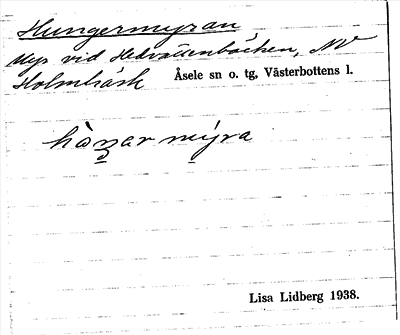 Hungermyran
Myr vid Hedvattenbäcken, NV
Holmträsk Åsele sn o. tg, Västerbottens l.
hàŋar mýra
Lisa Lidberg 1938.